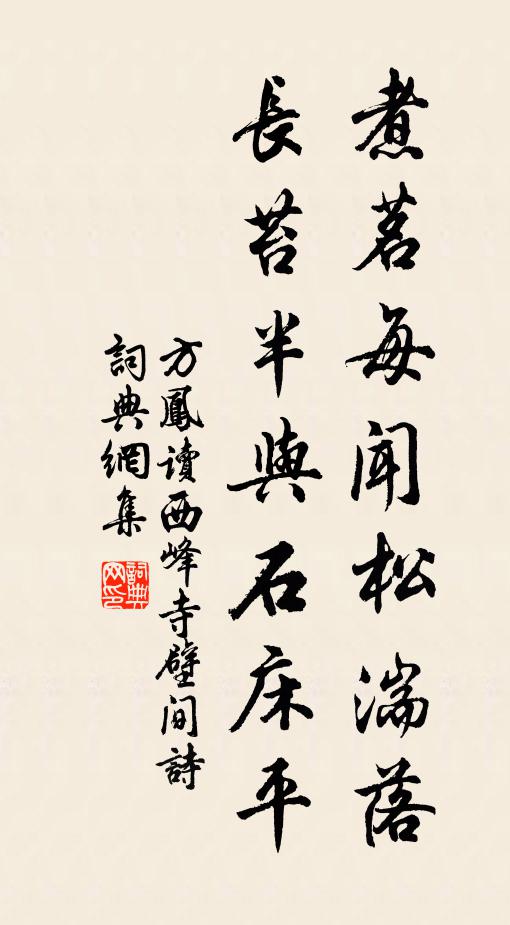 煮茗每聞松湍落
長苔半與石床平
方鳳讀西峰寺壁間詩
詞典網集
詞典网印